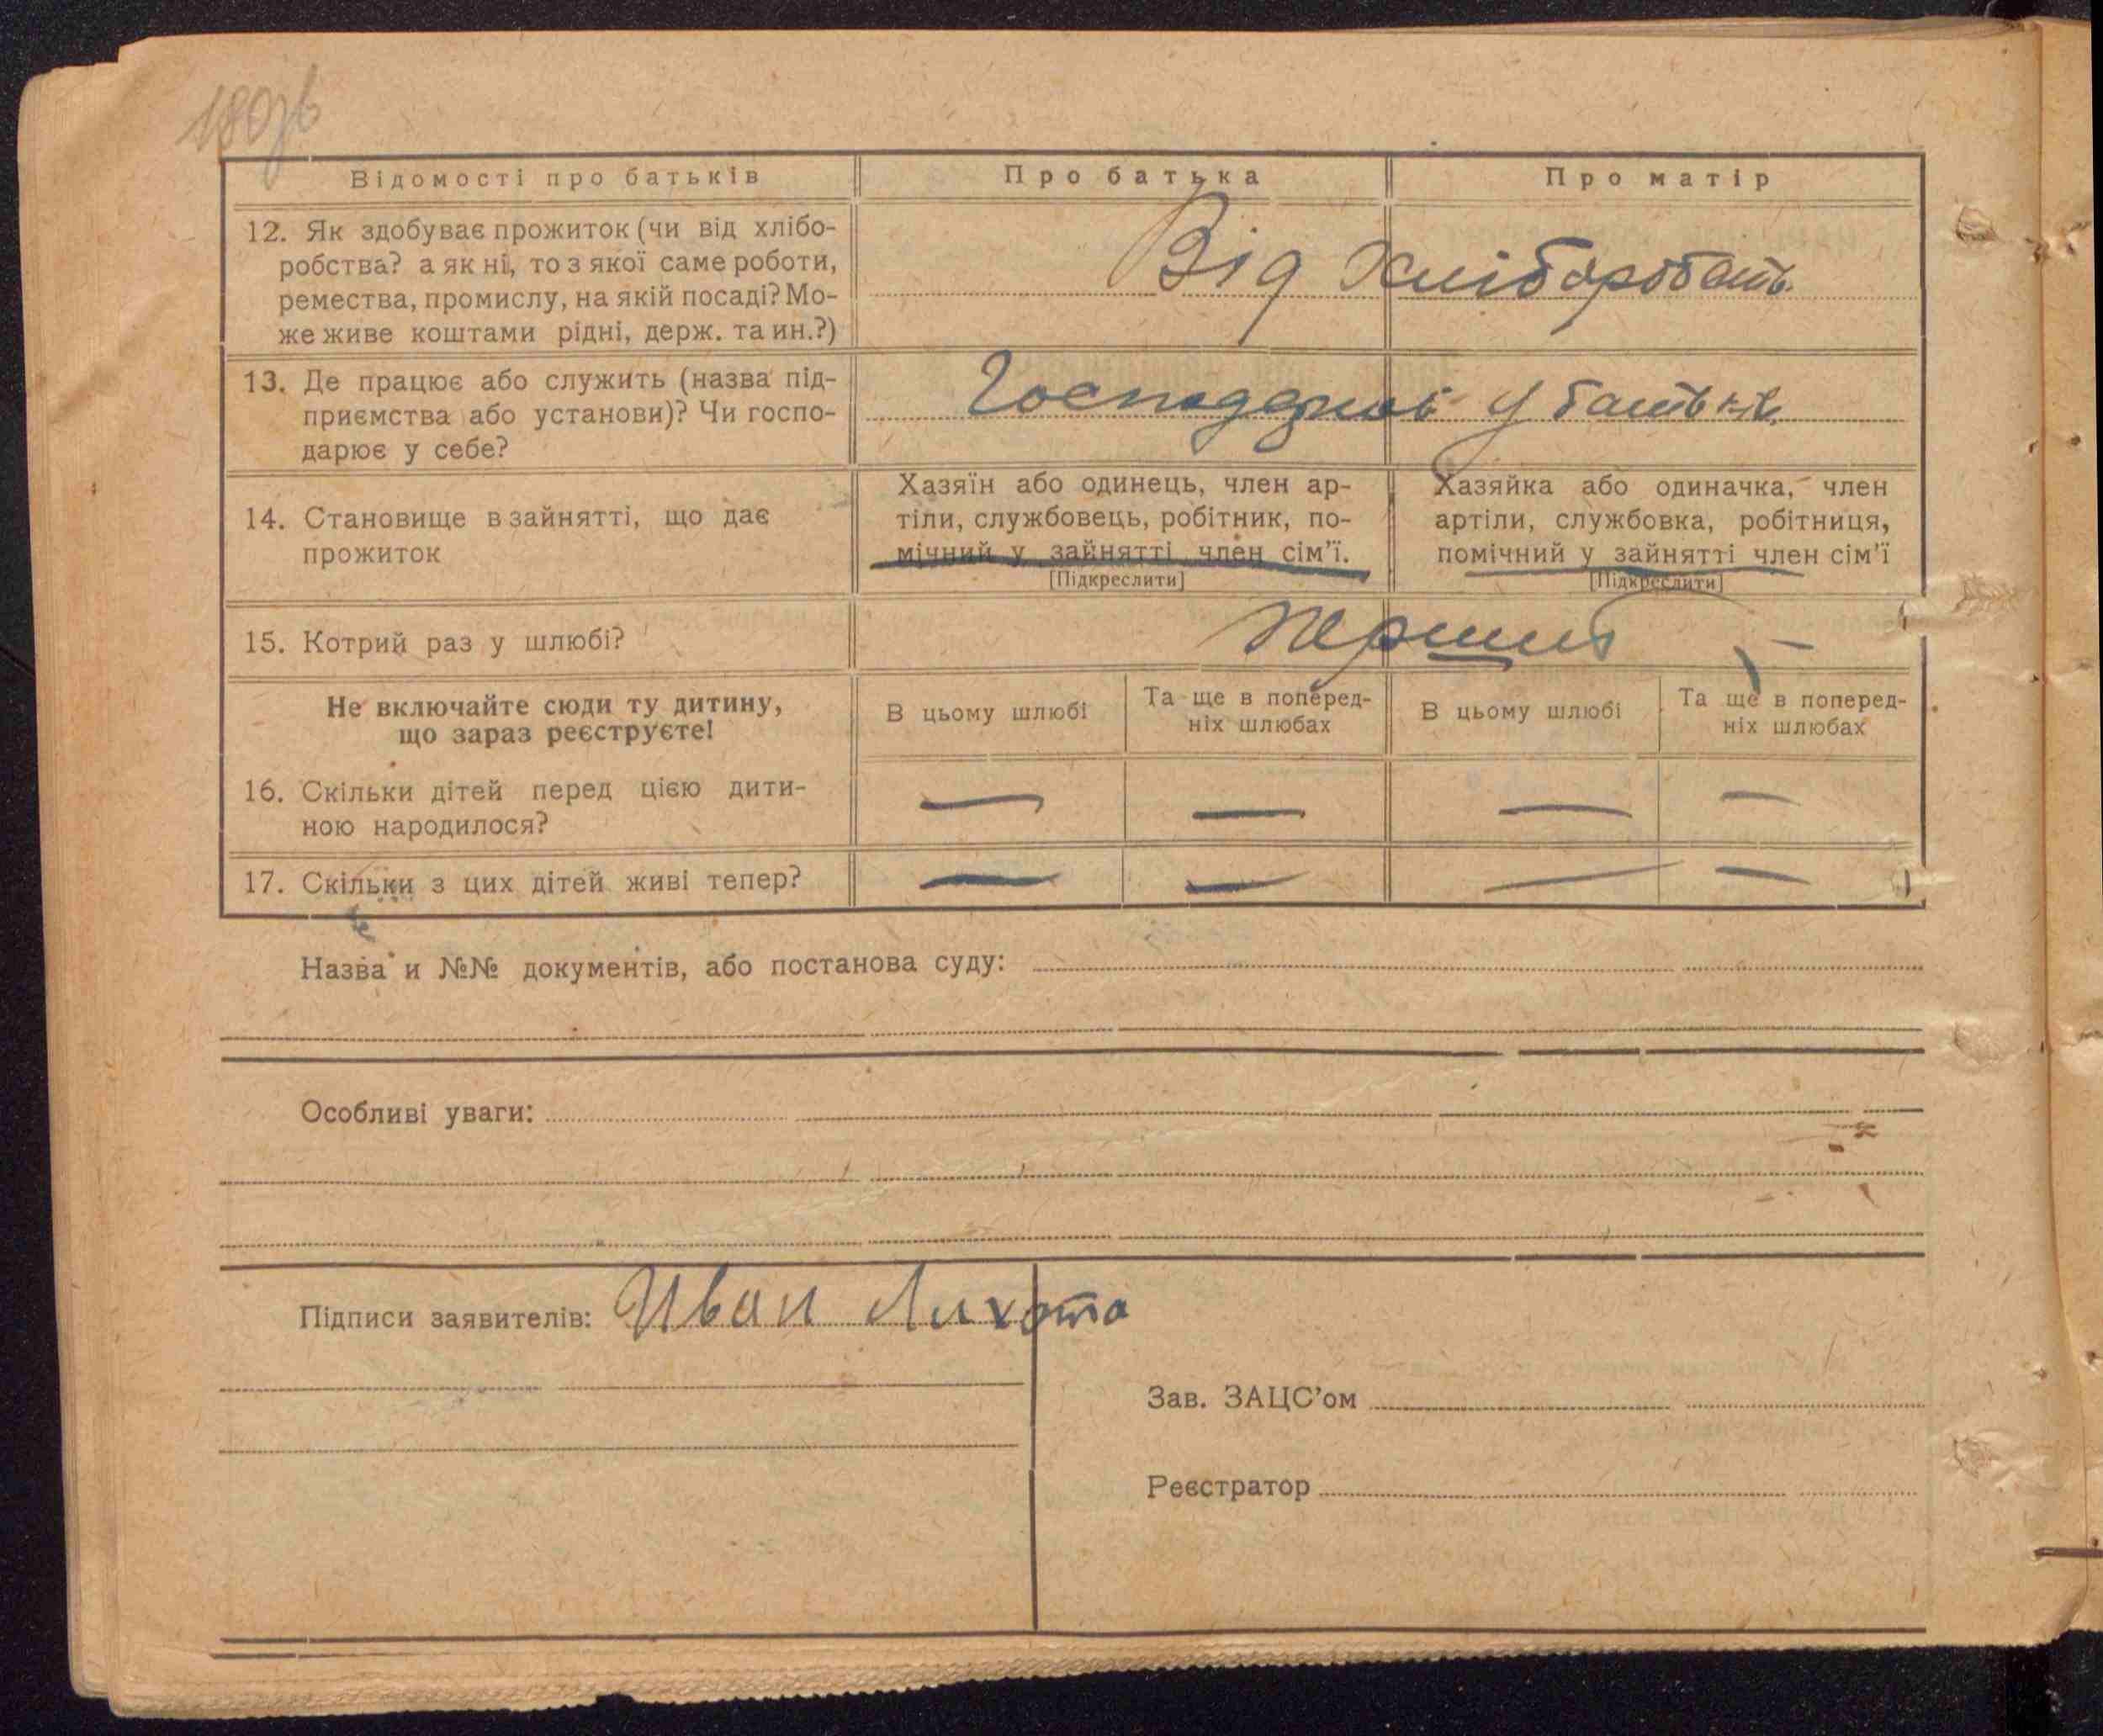 180зв
Відомості про батьків
Про батька
Про матір
12. Як здобуває прожиток (чи від хлібо-
робства? а як ні, то з якої саме роботи,
ремества, промислу, на якій посаді? Мо-
же живе коштами рідні, держ. та ин.?)
Від Хліборобств
13. Де працює або служить (назва під-
приємства або установи)? Чи госпо-
дарює у себе?
у батьків
14. Становище в зайнятті, що дає
прожиток
Хазяїн або одинець, член ар-
тіли, службовець, робітник, по-
мічний у зайнятті член сім'ї.
[Підкреслити]
Хазяйка або одиначка, член
артіли, службовка, робітниця,
помічний у зайнятті член сім'ї
[Підкреслити]
15. Котрий раз у шлюбі?
Перший —
Не включайте сюди ту дитину,
що зараз реєструєте!
В цьому шлюбі
Та ще в поперед-
ніх шлюбах
В цьому шлюбі
Та ще в поперед-
ніх шлюбах
16. Скільки дітей перед цією дити-
ною народилося?
— — — —
17. Скільки з цих дітей живі тепер?
— — — —
Назва и №№ документів, або постанова суду:
Особливі уваги:
Підписи заявителів: Иван Лихота
Зав. ЗАЦС'ом
Реєстратор